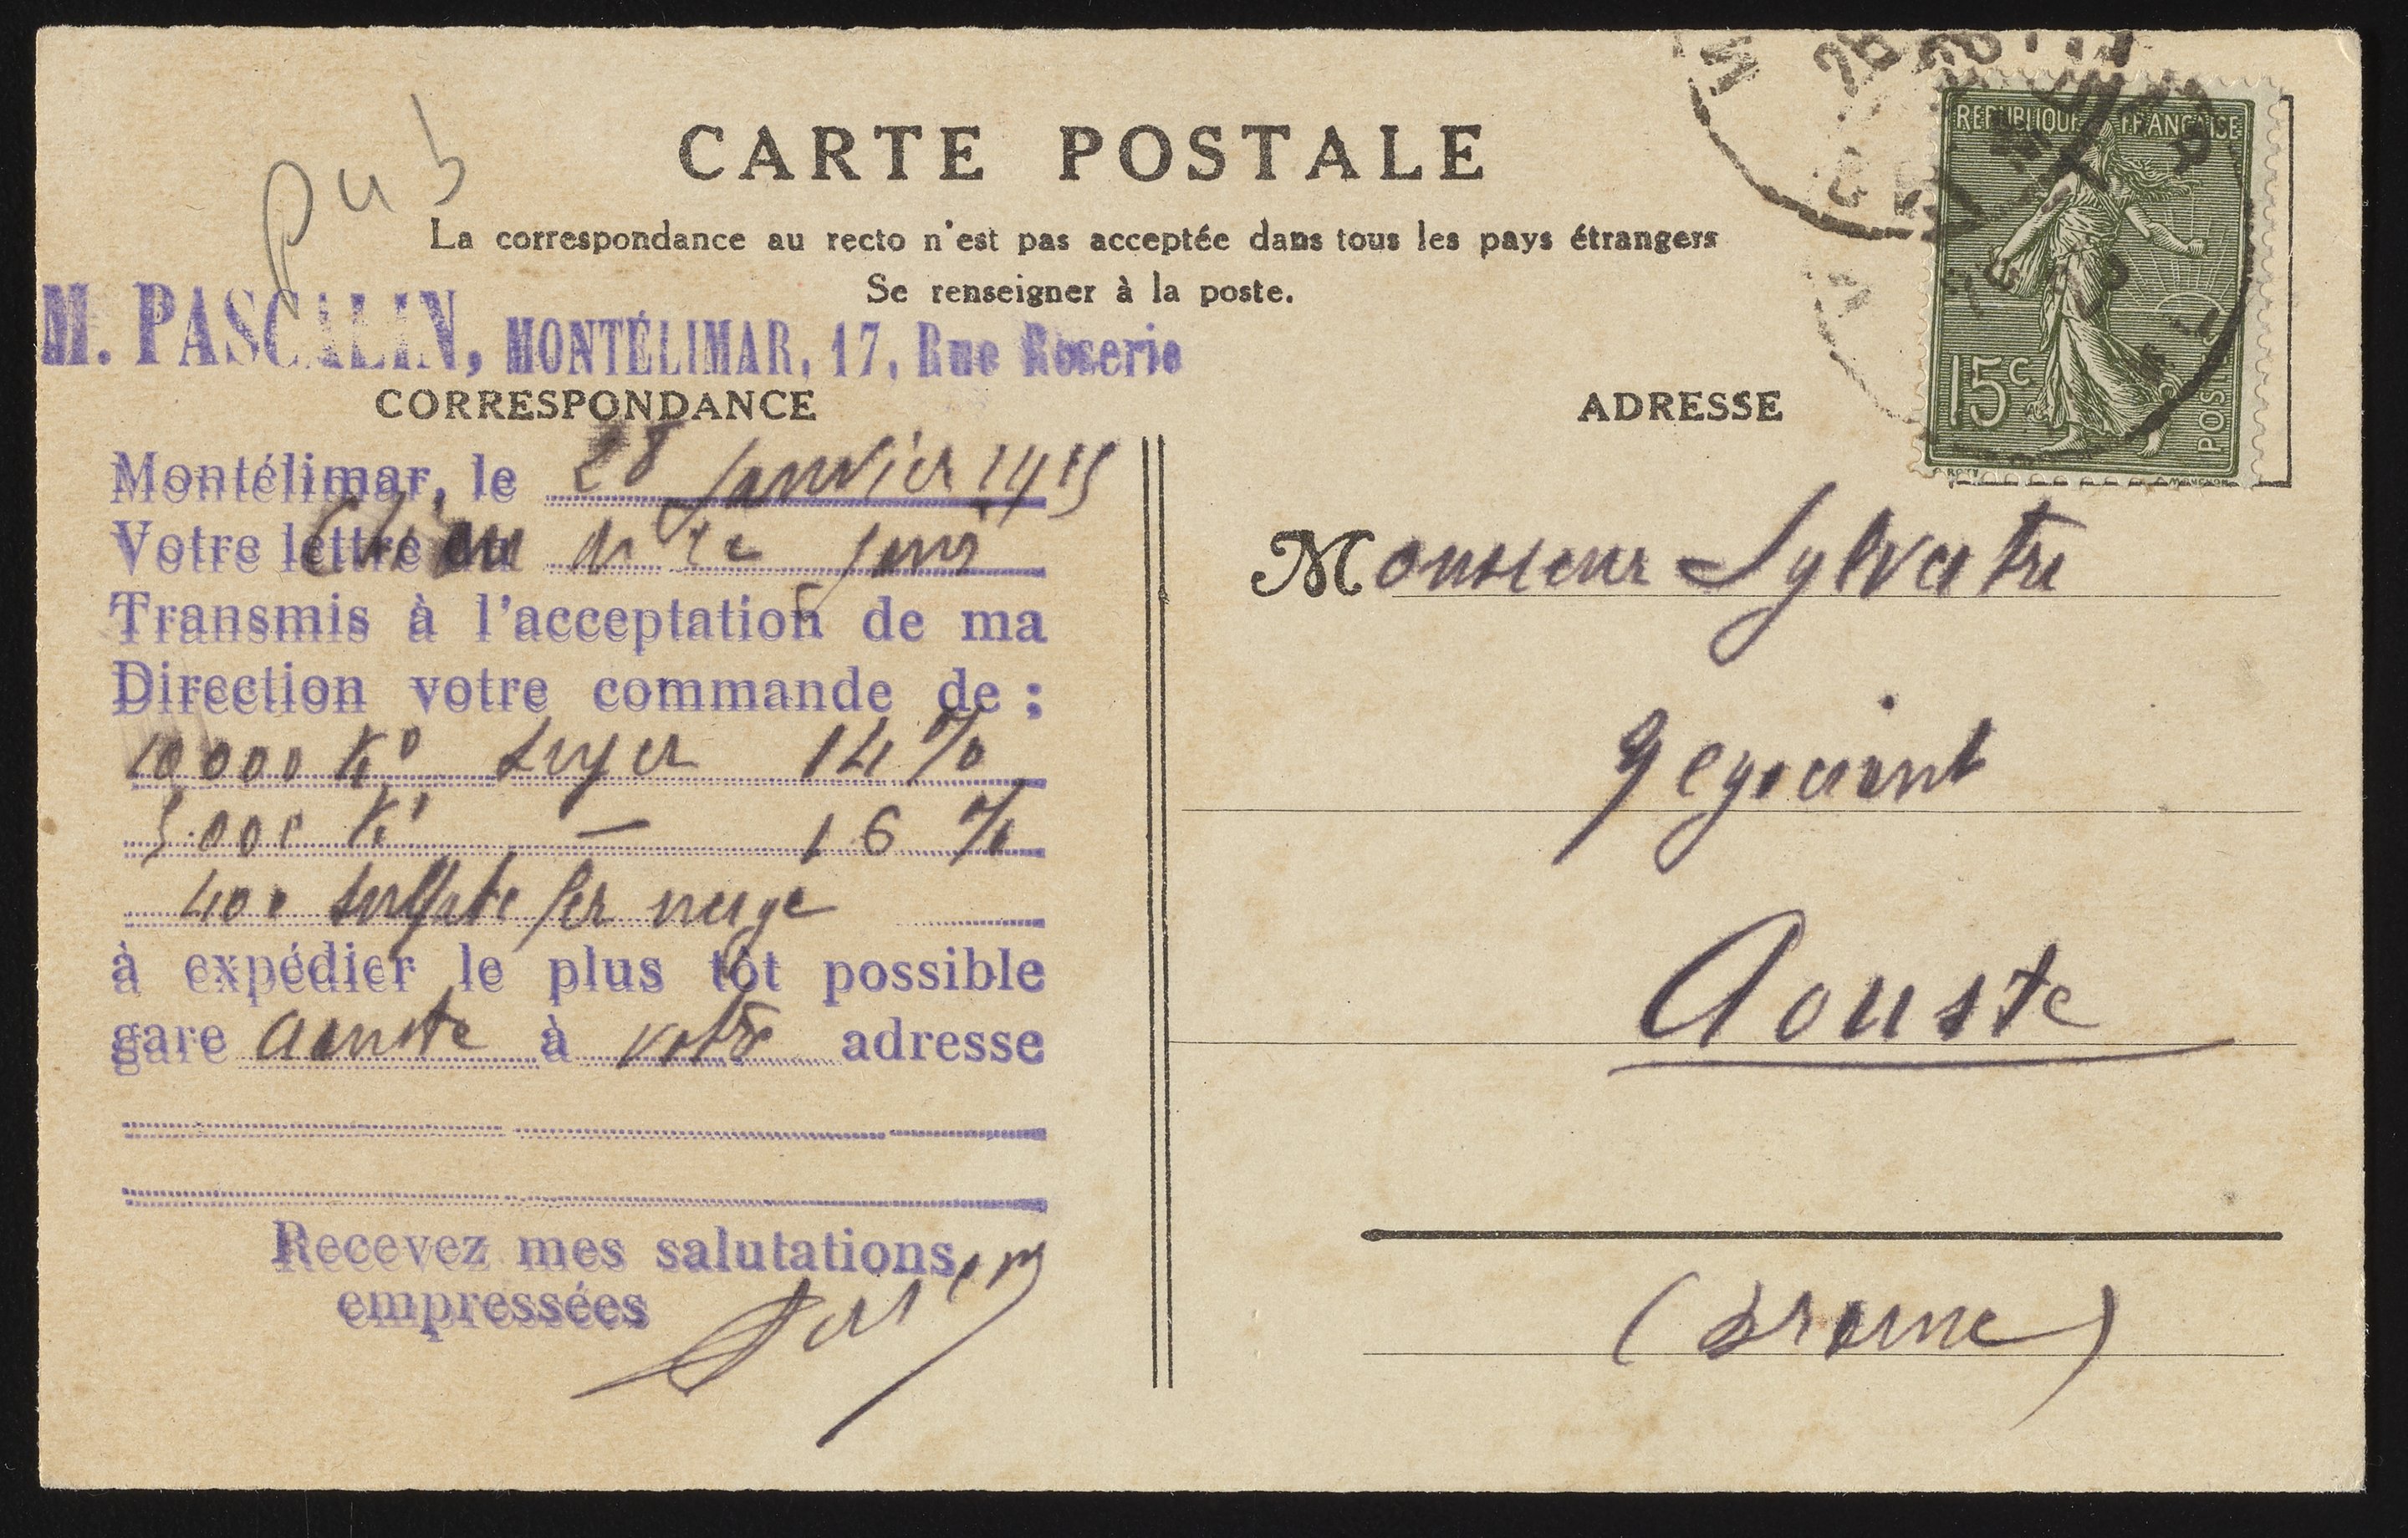 pub
CARTE POSTALE
La correspondance au recto n'est pas acceptée dans tous les pays étrangers
Se renseigner à la poste.
M. PASCALIN, MONTÉLIMAR, 17, Rue Roserie
CORRESPONDANCE
Montélimar, le 28 Janvier 1915
Votre lettre du de ce jour
Transmis à l'acceptation de ma
Direction votre commande de :
10000 K° super 14 %
5.000 K° — 16 %
400 sulfate fer neige
à expédier le plus tôt possible
gare Aouste à votre adresse
Recevez mes salutations
empressées
ADRESSE
REPUBLIQUE FRANÇAISE
15c
POSTES
Monsieur Sylvestre
Negociant
Aouste
(Drome)